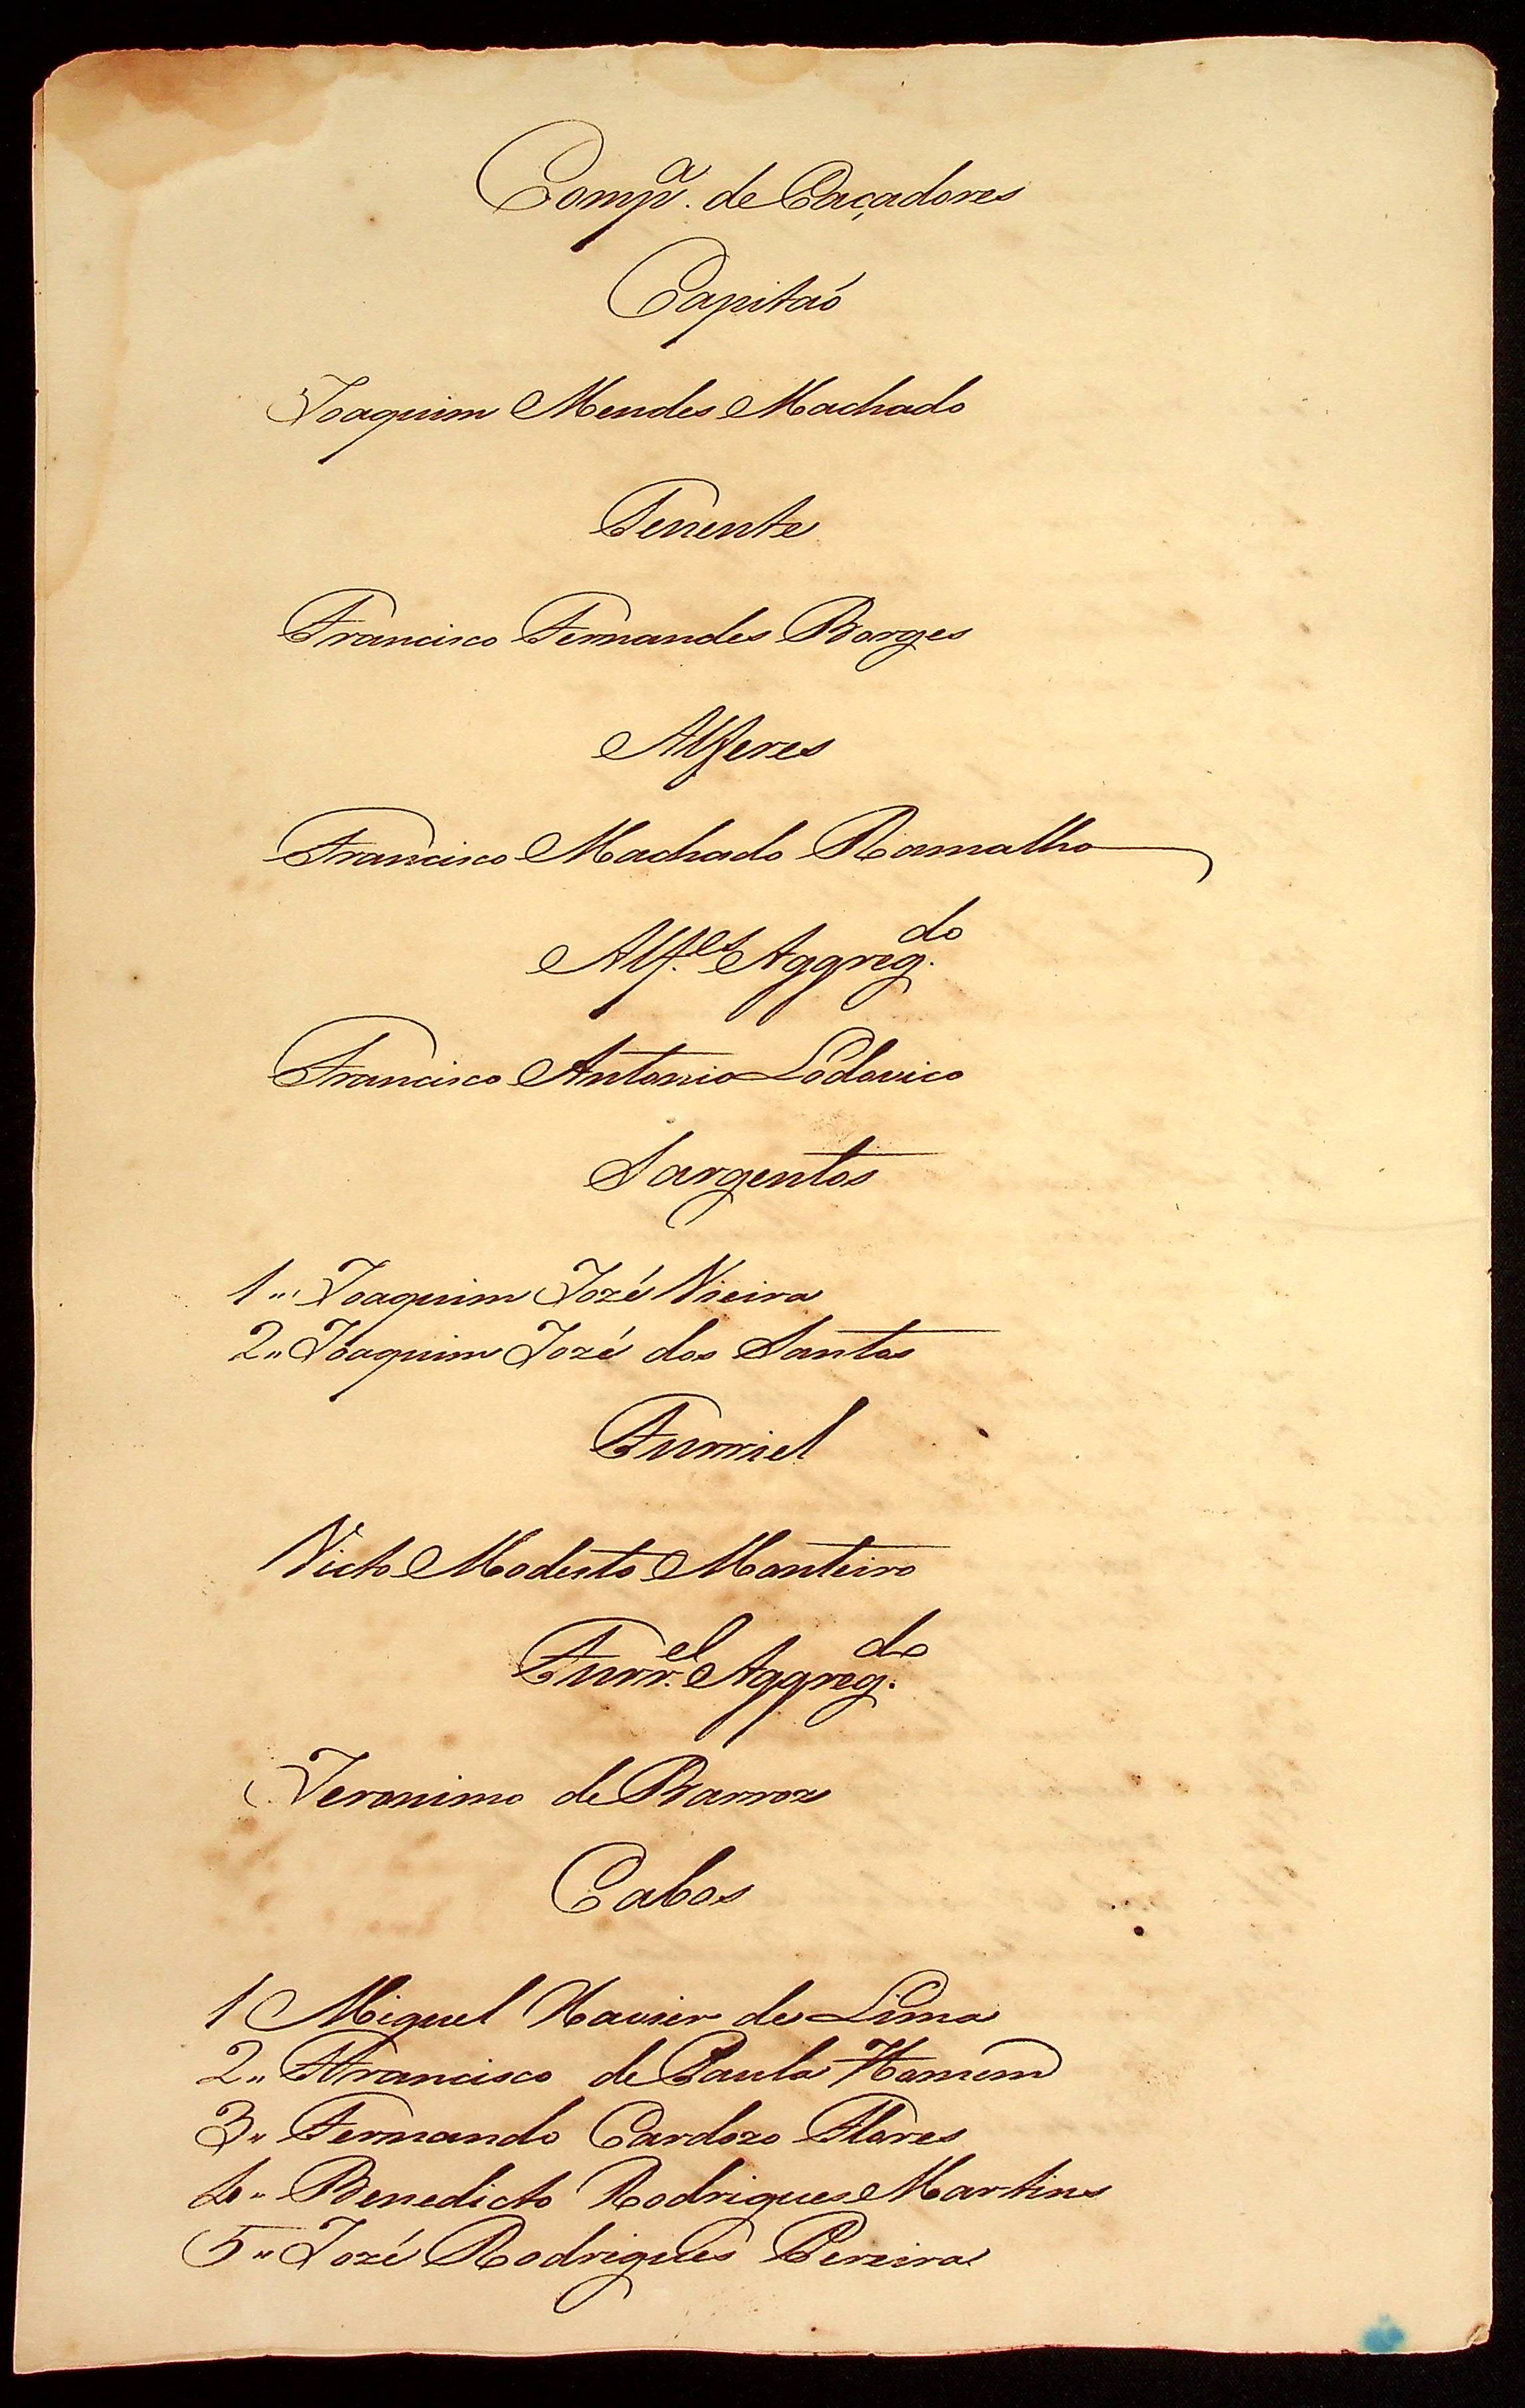 Comp.ª de Caçadores
Capitaó
Joaquim Mendes Machado
Tenente
Francisco Fernandes Borges
Alferes
Francisco Machado Ramalho
Alf.es Aggreg.do
Francisco Antonio Lodovico
Sargentos
1" Joaquim Jozé Vieira
2" Joaquim Jozé dos Santos
Furriel
Victo Modesto Monteiro
Furr.el Aggreg.do
Jeronimo de Barros
Cabos
1 Miguel Xavier de Lima
2" Francisco de Paula Homem
3" Fernando Cardozo Flores
4" Benedicto Rodrigues Martins
5" Jozé Rodrigues Pereira